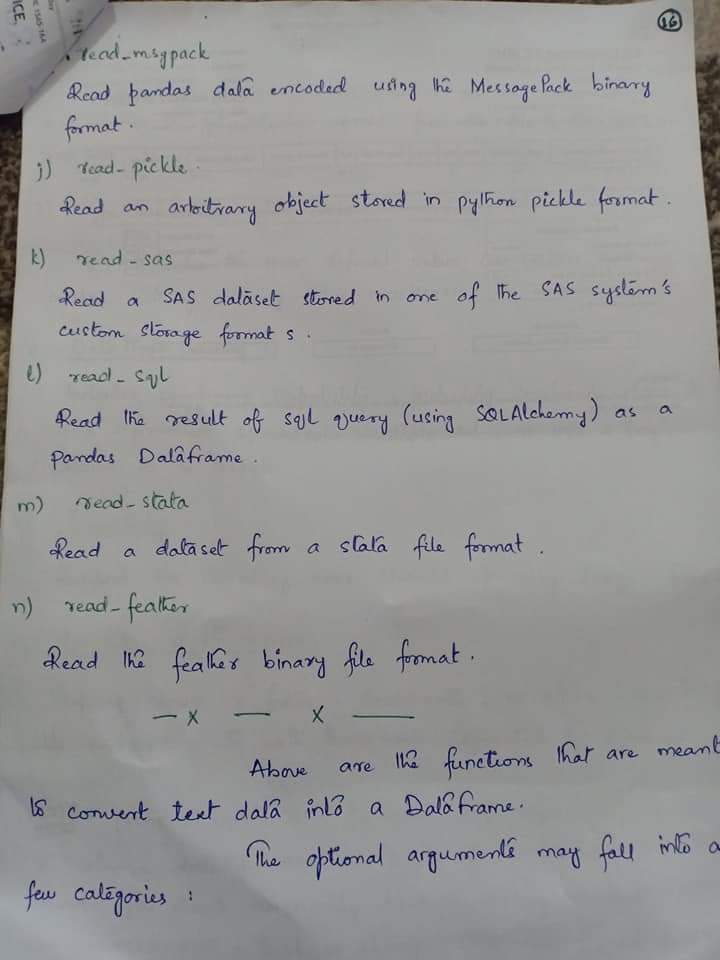 16
read_msgpack
Read pandas data encoded using the MessagePack binary
format.
j) read-pickle
Read an arbitrary object stored in python pickle format.
k) read-sas
Read a SAS dataset stored in one of the SAS system's
custom storage format s.
l) read-sql
Read the result of sql query (using SQLAlchemy) as a
pandas Dataframe.
m) read-stata
Read a dataset from a stata file format.
n) read-feather
Read the feather binary file format.
— x — x —
Above are the functions that are meant
to convert text data into a Dataframe.
The optional arguments may fall into a
few categories :